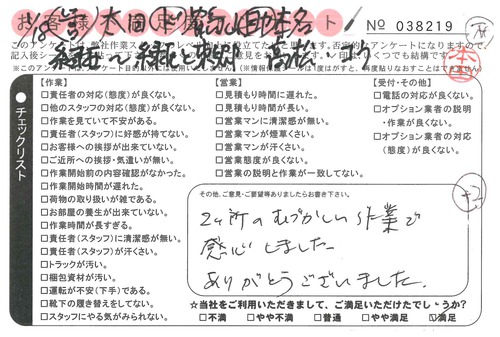 お客様 満足度 アンケート
No 038219
このアンケートは、弊社作業スタッフのレベル
記入後シ
□チェックリスト
【作業】
□責任者の対応(態度)が良くない。
□他のスタッフの対応(態度)が良くない。
□作業を見ていて不安がある。
□責任者(スタッフ)に好感が持てない。
□お客様への挨拶が出来ていない。
□ご近所への挨拶・気遣いが無い。
□作業開始前の内容確認がなかった。
□作業開始時間が遅れた。
□荷物の取り扱いが雑である。
□お部屋の養生が出来ていない。
□作業時間が長すぎる。
□責任者(スタッフ)に清潔感が無い。
□責任者(スタッフ)が汗くさい。
□トラックが汚い。
□梱包資材が汚い。
□運転が不安(下手)である。
□靴下の履き替えをしてない。
□スタッフにやる気がみられない。
【営業】
□見積もり時間に遅れた。
□見積もり時間が長い。
□営業マンに清潔感が無い。
□営業マンが煙草くさい。
□営業マンが汗くさい。
□営業態度が良くない。
□営業の説明と作業が異なる。
【受付・その他】
□電話の対応が良くない。
□オプション業者の説明
・作業が良くない。
□オプション業者の対応
(態度)が良くない。
その他、ご意見・ご要望等ありましたらお書き下さい。
2ヶ所のむづかしい作業で
感心しました
ありがとうございました。
☆当社をご利用いただきまして、ご満足いただけたでしょうか?
□不満 □やや不満 □普通 □やや満足 ☑満足